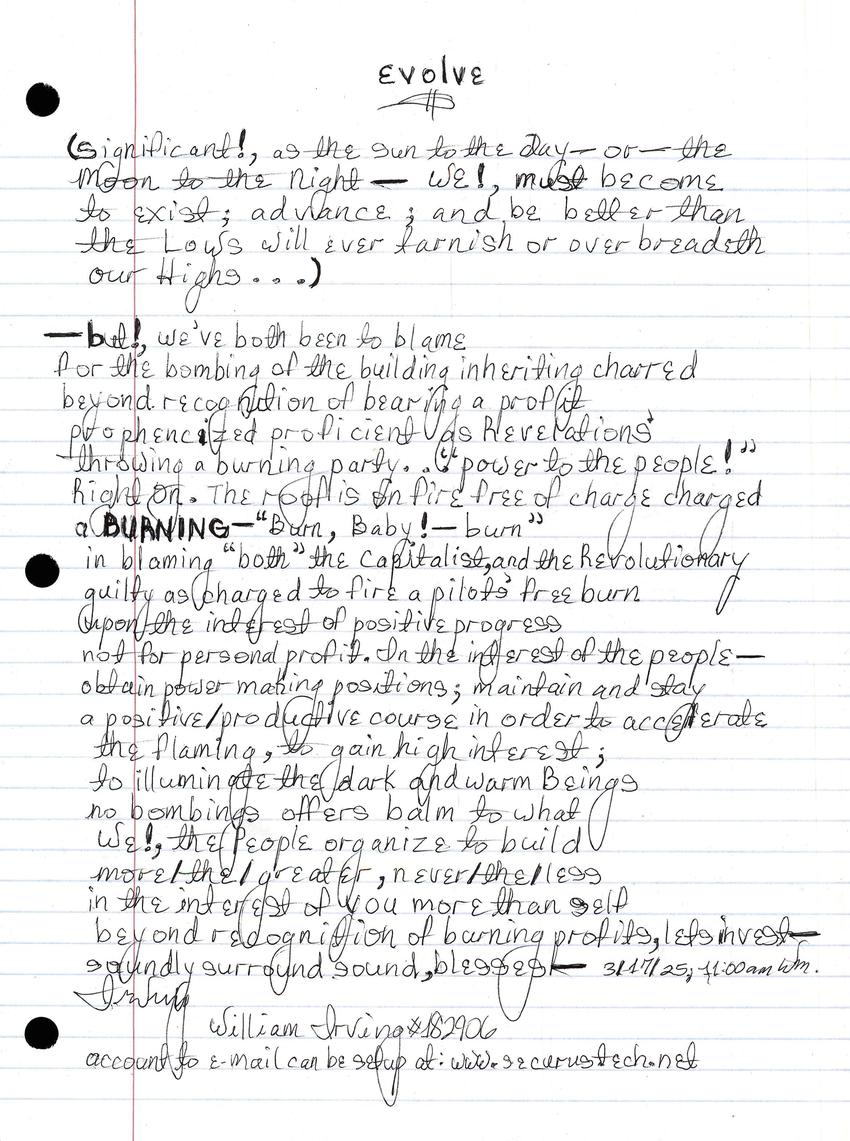 Evolve
(significant!, as the sun to the Day — or — the
Moon to the Night — We!, must become
to exist; advance; and be better than
the Lows will ever tarnish or over breadeth
our Highs . . . .)
— but!, we've both been to blame
for the bombing of the building inheriting charred
beyond recognition of bearing a profit
prophencized proficient as Revelations'
throwing a burning party. . ("power to the people!"
Right On. The roof is on fire free of charge charged
a BURNING — "Burn, Baby! — burn"
in blaming "both" the Capitalist, and the Revolutionary
guilty as charged to fire a pilots' free burn
Upon the interest of positive progress
not for personal profit. In the interest of the people —
obtain power making positions; maintain and stay
a positive/productive course in order to accelerate
the flaming, to gain high interest;
to illuminate the dark and warm Beings
no bombings offers balm to what
We!, the People organize to build
more/the/greater, never/the/less
in the interest of you more than self
beyond recognition of burning profits, lets invest —
soundly surround sound, blesses — 3/17/25, 11:00am Wm.
Irving
William Irving #182906
account to e-mail can be setup at: www.securustech.net